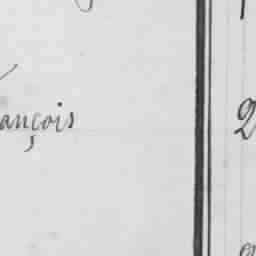 ançois 2